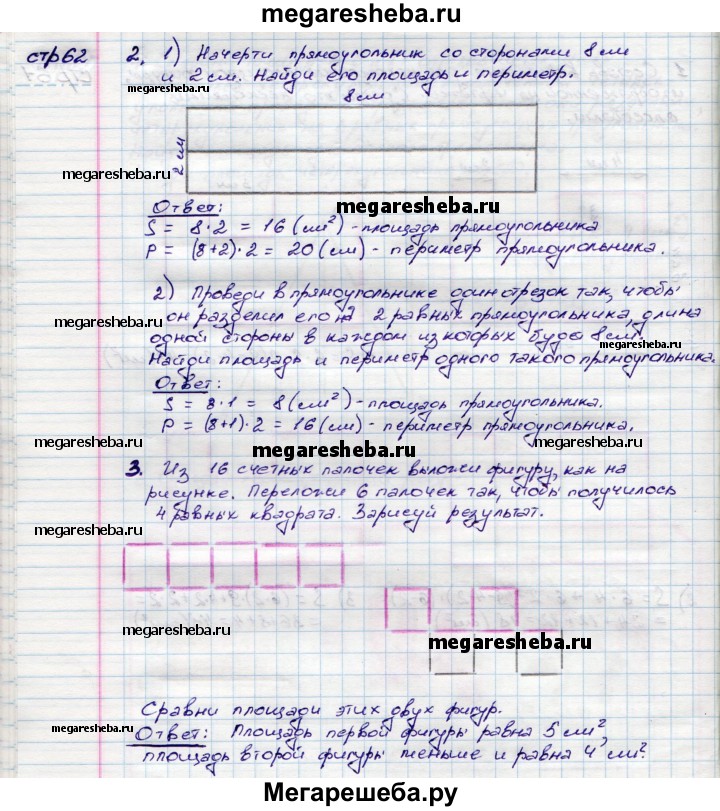 megaresheba.ru
стр 62
2. 1) Начерти прямоугольник со сторонами 8 см
и 2 см. Найди его площадь и периметр.
megaresheba.ru
8 см
2 см
megaresheba.ru
megaresheba.ru
Ответ:
S = 8·2 = 16 (см²) - площадь прямоугольника
P = (8+2)·2 = 20 (см) - периметр прямоугольника.
2) Проведи в прямоугольнике один отрезок так, чтобы
он разделил его на 2 равных прямоугольника, длина
megaresheba.ru
одной стороны в каждом из которых будет 8 см.
Найди площадь и периметр одного такого прямоугольника.
Ответ:
S = 8·1 = 8 (см²) - площадь прямоугольника.
P = (8+1)·2 = 16 (см) - периметр прямоугольника.
megaresheba.ru
3. Из 16 счетных палочек выложи фигуру, как на
рисунке. Переложи 6 палочек так, чтобы получилось
4 равных квадрата. Зарисуй результат.
megaresheba.ru
megaresheba.ru
megaresheba.ru
Сравни площади этих двух фигур.
Ответ: Площадь первой фигуры равна 5 см²,
megaresheba.ru
площадь второй фигуры меньше и равна 4 см².
Мегарешеба.ру